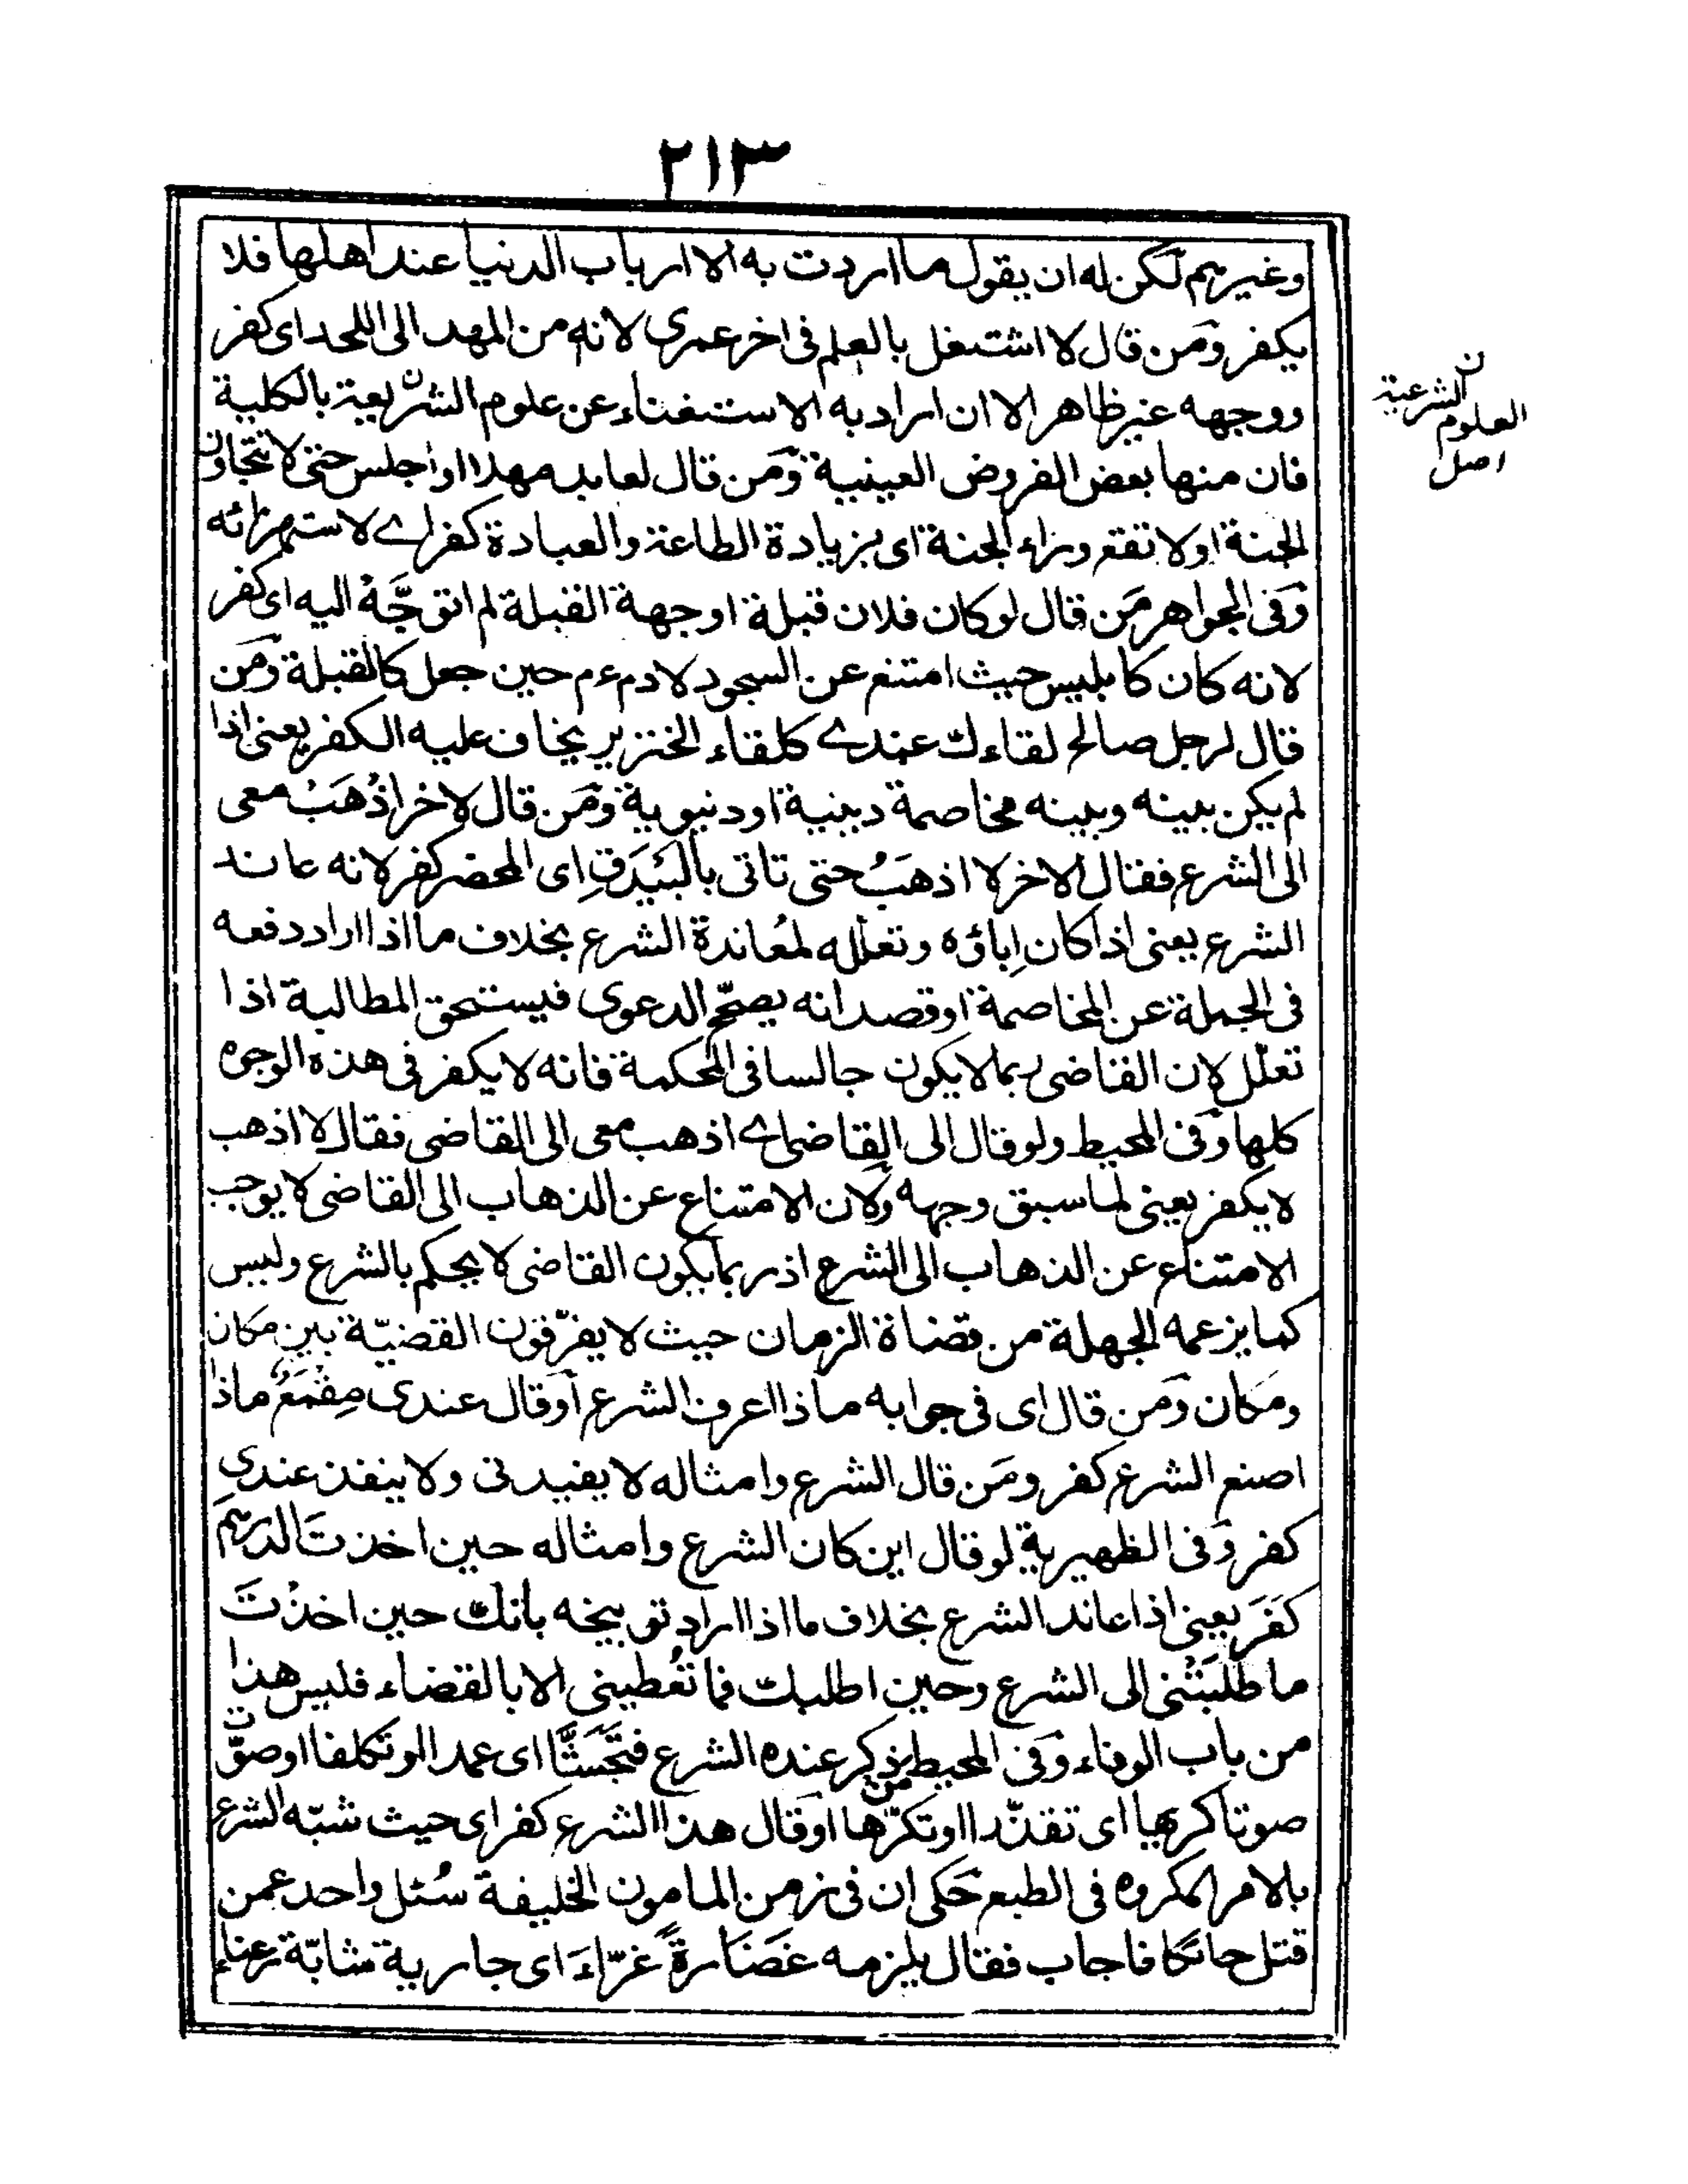 ٢١٣
وغيرهم لكن له ان يقول ما اردت به الا ارباب الدنيا عند اهلها فلا
يكفر ومن قال لا اشتغل بالعلم فى اخر عمرى لانه من المهد الى اللحد اى كفر
ووجهه غير ظاهر الا ان اراد به الاستغناء عن علوم الشريعة بالكلية
فان منها بعض الفروض العينية ومن قال لعابد مهلا او اجلس حتى لا تتجاوز
الجنة او لا تقع وراء الجنة اى بزيادة الطاعة والعبادة كفر اے لاستهزائه
وفى الجواهر من قال لو كان فلان قبلة او جهة القبلة لم اتوجَّهْ اليه اى كفر
لانه كان كابليس حيث امتنع عن السجود لادم ءم حين جعل كالقبلة ومن
قال لرجل صالح لقاءك عندے كلقاء الخنزير يخاف عليه الكفر يعنى اذا
لم يكن بينه وبينه مخاصمة دينية او دنيوية ومن قال لاخر اذْهَبْ معى
الى الشرع فقال الاخر لا اذهبُ حتى تاتى بالبَيْدَقِ اى المحضر كفر لانه عاند
الشرع يعنى اذا كان اِباؤه وتعلله لمُعاندة الشرع بخلاف ما اذا اراد دفعه
فى الجملة عن المخاصمة او قصد انه يصحّح الدعوى فيستحق المطالبة اذا
تعلّل لان القاضى ربما لا يكون جالسا فى المحكمة فانه لا يكفر فى هذه الوجوه
كلها وفى المحيط ولو قال الى القاضى اے اذهب معى الى القاضى فقال لا اذهب
لا يكفر يعنى لما سبق وجهه ولان الامتناع عن الذهاب الى القاضى لا يوجب
الامتناع عن الذهاب الى الشرع اذ ربما يكون القاضى لا يحكم بالشرع وليس
كما يزعمه الجهلة من قضاة الزمان حيث لا يفرّقون القضيّة بين مكان
ومكان ومن قال اى فى جوابه ماذا اعرف الشرع او قال عندى مِقْمَعٌ ماذا
اصنع الشرع كفر ومَن قال الشرع وامثاله لا يفيدنى ولا ينفذ عندى
كفر وفى الظهيرية لو قال اين كان الشرع وامثاله حين اخذتَ الدرهم
كَفَرَ يعنى اذا عاند الشرع بخلاف ما اذا اراد توبيخه بانك حين اخذْتَ
ما طلَبَتْنى الى الشرع وحين اطلبك فما تُعْطينى الا بالقضاء فليس هذا
من باب الوفاء وفى المحيط من ذكر عنده الشرع فتَجَشَّأ اى عمدا او تكلفا او صوّت
صوتا كريها اى تقذّدا او تكرّها او قال هذا الشرع كفر اى حيث شبّه الشرع
بالامر المكروه فى الطبع حَكى ان فى زمن المامون الخليفة سُئل واحد عمن
قتل حائكا فاجاب فقال يلزمه غَضَارَةٌ غرّاءَ اى جارية شابّة رعناء
ن
العلوم الشرعية
اصل